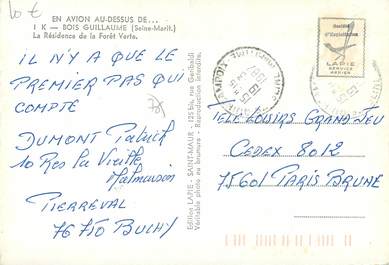 10 €
EN AVION AU-DESSUS DE...
1 K — BOIS GUILLAUME (Seine-Marit.)
La Résidence de la Forêt Verte.
IL N'Y A QUE LE
PREMIER PAS QUI
COMPTE
DUMONT Patrick
10 Res La Vieille
Malmaison
PIERREVAL
76710 BUCHY
Edition LAPIE - SAINT-MAUR - 125 bis, rue Garibaldi
Véritable photo au bromure - Reproduction interdite.
LAPIE
SERVICE
AERIEN
TELE LOISIRS GRAND JEU
CEDEX 8012
75601 PARIS BRUNE